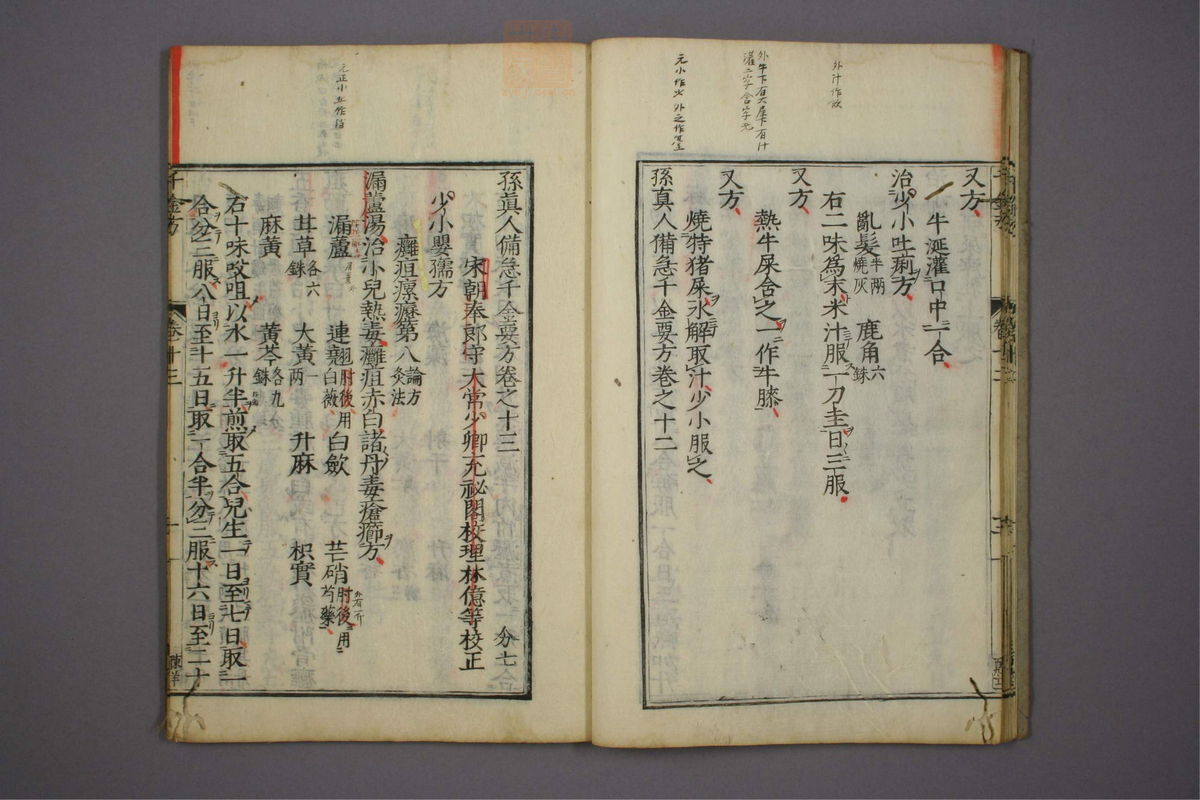 外汁作飲
外牛下有犬屎下有汁
灌二字含字无
元小作火外之作宜
又方
牛涎灌口中一合
治少小吐痢方
亂髮半兩燒灰 鹿角六銖
右二味為末米汁服一刀圭日三服
又方
熱牛屎含之一作牛膝
又方
燒特猪屎水解取汁少小服之
孫真人備急千金要方卷之十二
元正小五作百
孫真人備急千金要方卷之十三
宋朝奉郎守太常少卿充祕閣校理林億等校正
少小嬰孺方
癰疽瘰癧第八論方灸法
漏蘆湯治小兒熱毒癰疽赤白諸丹毒瘡癤方
漏蘆 連翹肘後用白薇 白歛 芒硝肘後用芍藥
甘草各六銖 大黃一兩 升麻 枳實
麻黃 黃芩各九銖
右十味㕮咀以水一升半煎取五合兒生一日至七日取一
合分三服八日至十五日取一合半分三服十六日至二十
千金方
卷十三